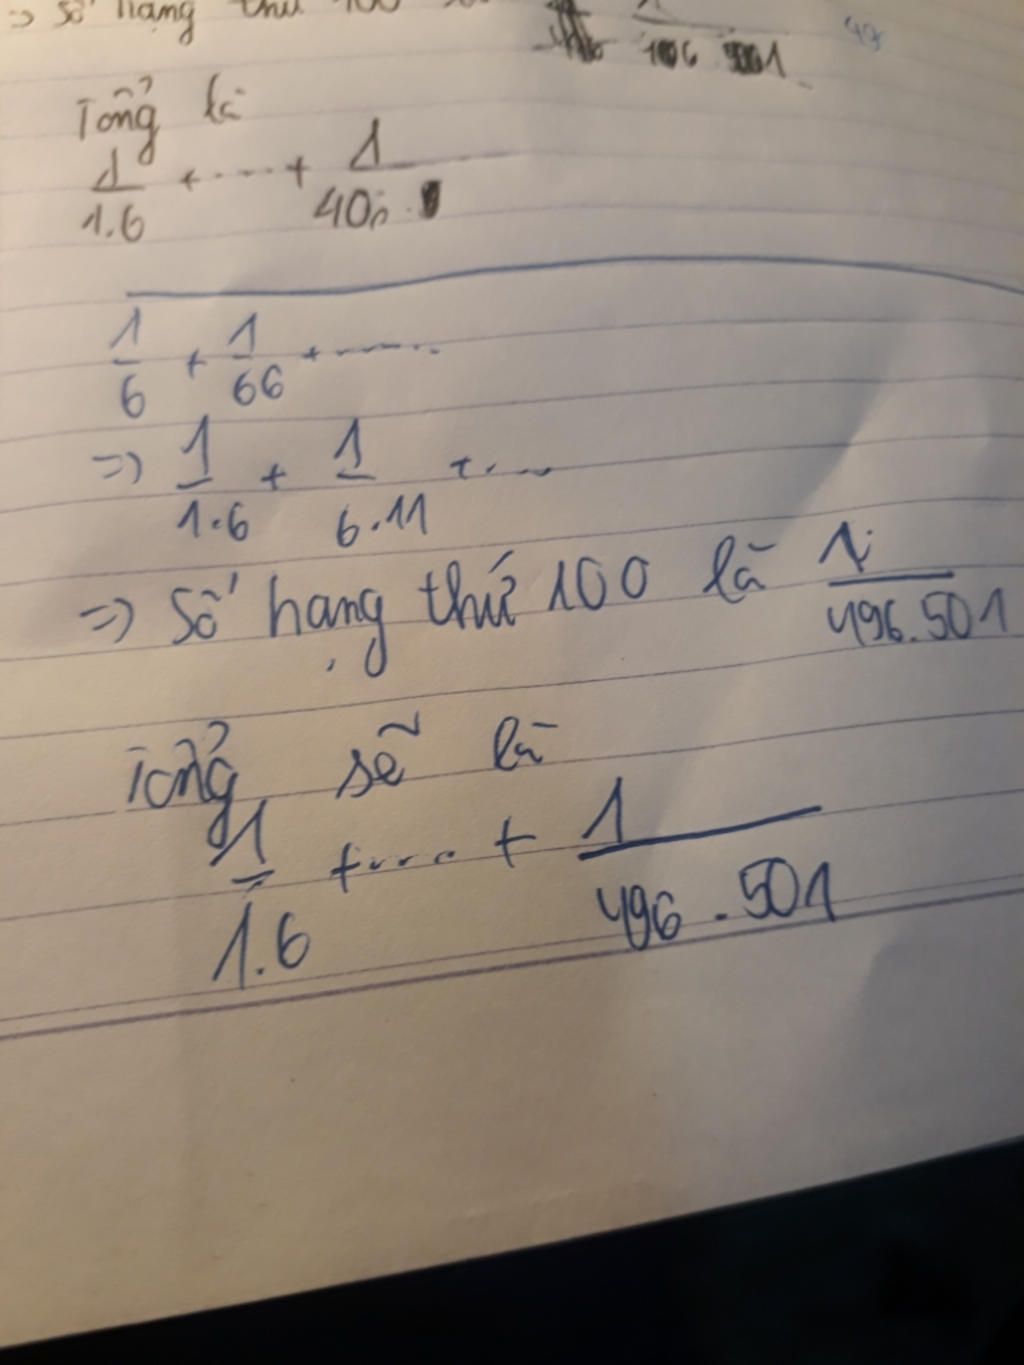 => số hạng thứ 100
1
106 . 501
Tổng là
1/1.6 + ..... + 1/400 .
1/6 + 1/66 + ........
=> 1/1.6 + 1/6.11 + ....
=> Số hạng thứ 100 là 1/496.501
Tổng sẽ là
1/1.6 + .... + 1/496.501